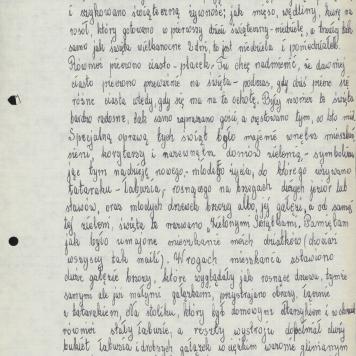 i szykowano świąteczną żywność; jak mięso, wędliny, kurę na
rosół, który gotowano w pierwszy dzień świąteczny - niedzielę, a trwają tak
samo jak święta wielkanocne 2 dni, to jest niedziela i poniedziałek.
Również pieczono ciasto - placek. Tu chcę nadmienić, że dawniej
ciasto pieczono przeważnie na święta - podczas, gdy dziś piecze się
różne ciasta wtedy, gdy się ma na to ochotę. Były również te święta
bardzo radosne, tak samo zapraszano gości, a częstowano tym, co kto miał.
Specjalną oprawą tych świąt było majenie wnętrz mieszkań,
sieni, korytarzy i zewnętrza domów zielenią - symbolizu-
jąc tym nadzieję nowego - młodego życia, do którego używano
tataraku - łabuzia, rosnącego na brzegach dużych jezior lub
stawów, oraz młodych drzewek brzozy albo jej gałęzie, a od samej
tej zieleni, święta te nazwano "Zielonymi Świątkami". Pamiętam
jak było umajone mieszkanie moich dziadków (dawniej
wszyscy tak maili). W rogach mieszkania stawiano
duże gałęzie brzozy, które wyglądały jak rosnące drzewa, tymże
samymi ale już małymi gałązkami, przystrajano obrazy, łącznie
z tatarakiem, dla stolika, który był domowym ołtarzykiem
również stały łabuzie, a reszty wystroju dopełniał duży
bukiet łabuzia i drobnych gałązek w wielkim wazonie glinianym